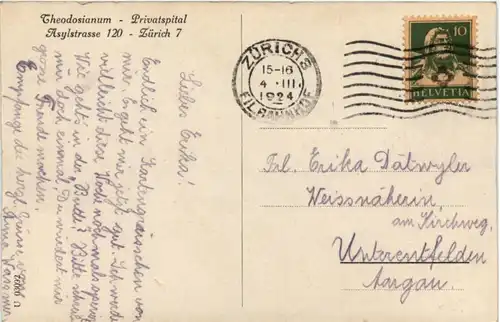 Theodosianum - Privatspital
Asylstrasse 120 - Zürich 7
Liebe Erika!
Endlich ein Kartengrüsschen von
mir. Es geht mir jetzt gut. Ich werde
vielleicht diese Woche nochmals operiert
Wie geht's in der Bude? Bitte schreib
mir doch einmal, Du würdest mir
grosse Freude machen.
Empfange die herzl. Grüsse v.
Anna
ZÜRICH 8
15-16
4. III.
1924
FILBAHNHOF
10
HELVETIA
Frl. Erika Dätwyler
Weissnäherin,
am Kirchweg,
Unterentfelden
Aargau.